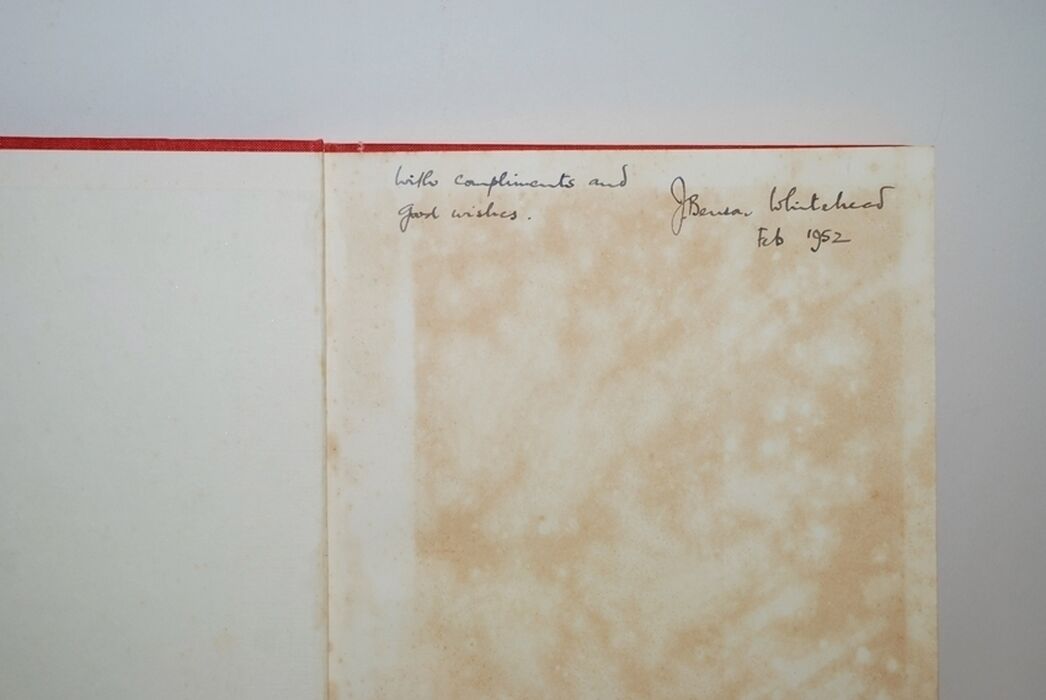 with compliments and
good wishes.
J. Benson Whitehead
Feb 1952